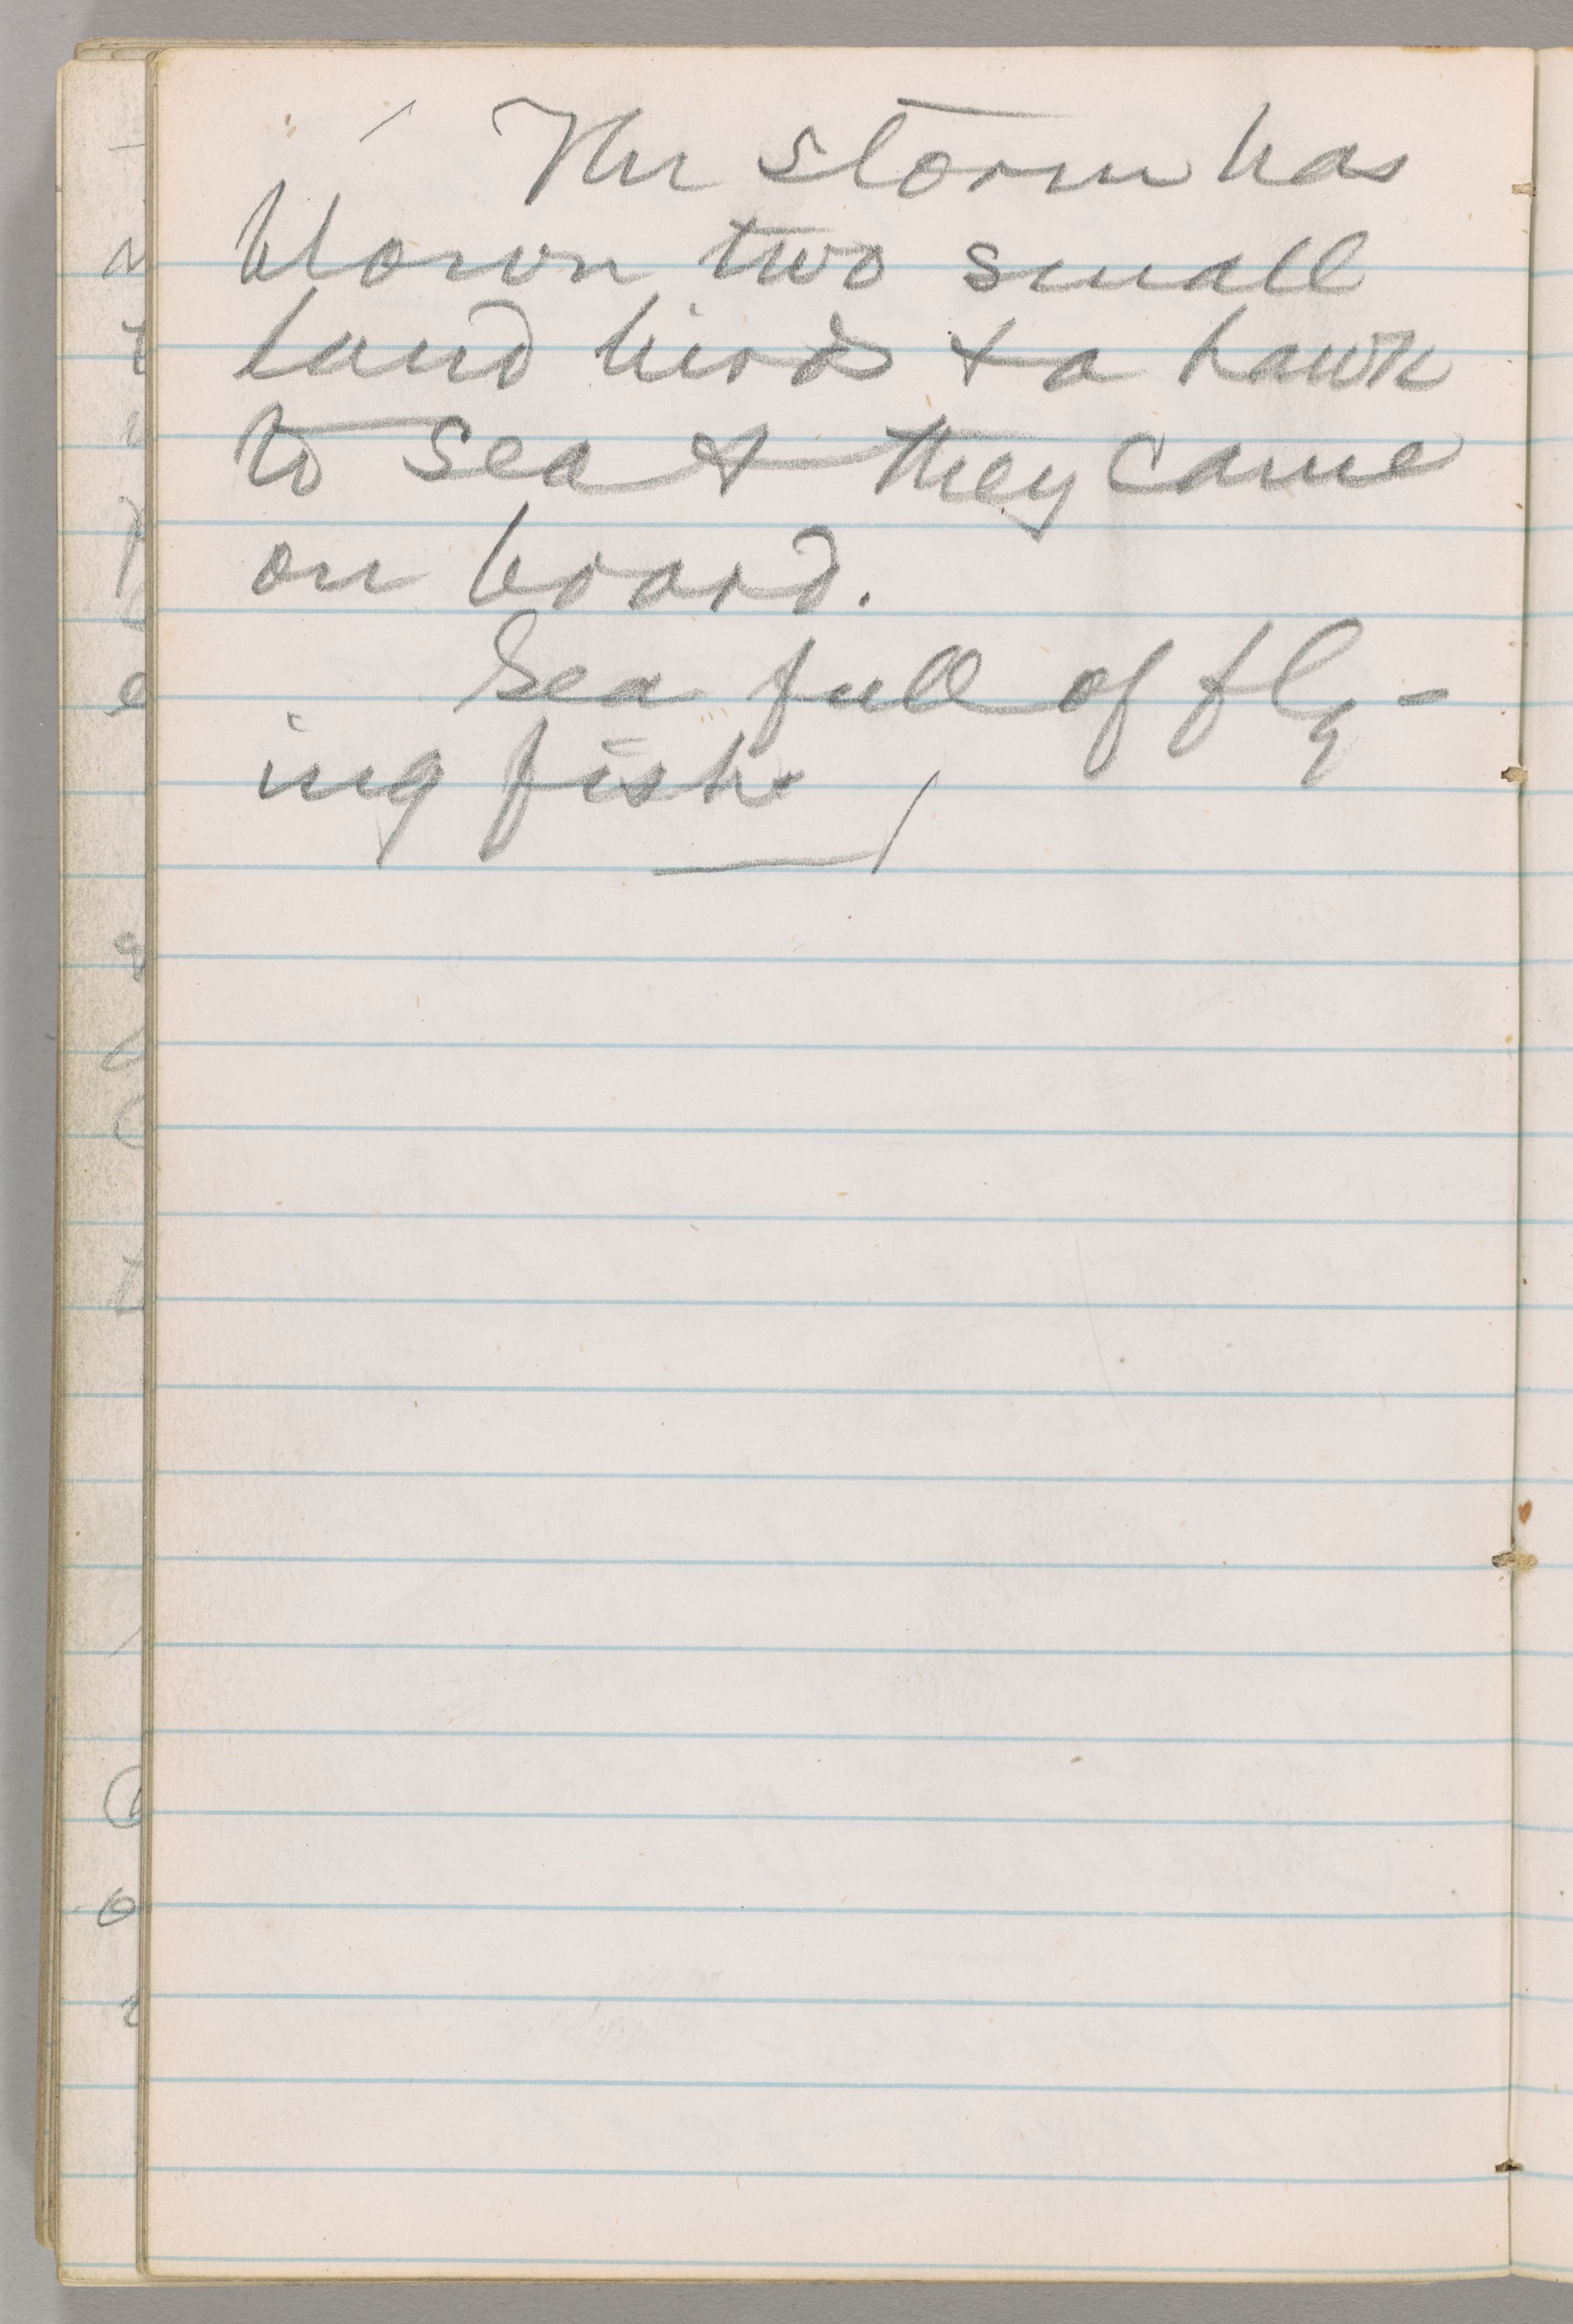 The storm has
blown two small
land birds & a hawk
to sea & they came
on board.
Sea full of fly-
ing fish.